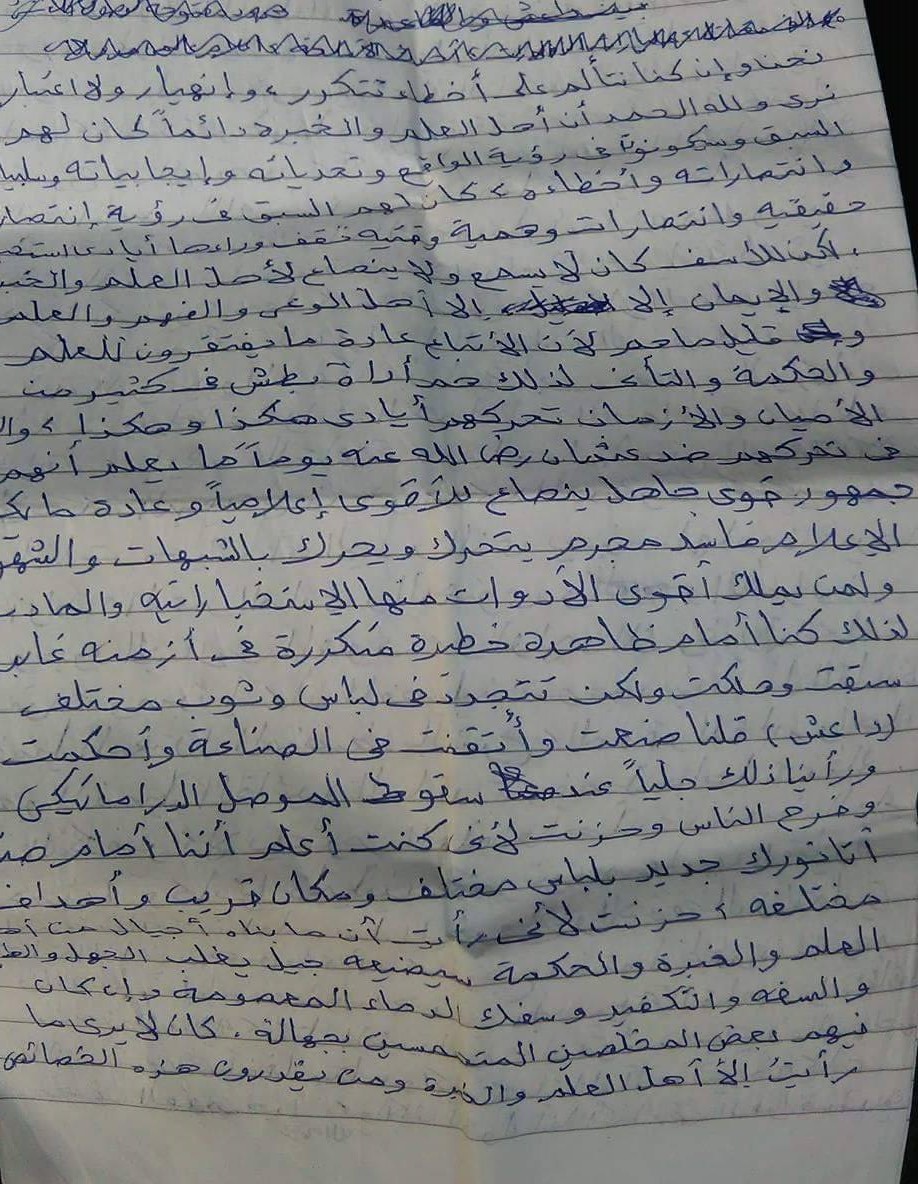 بين داعش
نحن وإن كنا نتألم على أخطاء تتكرر، وإنهيار ولا اعتبار
نرى ولله الحمد أن أهل العلم والخبرة دائماً كان لهم
السبق وسيكونوا في رؤية الواقع وتحدياته وإيجابياته وسلبيا
وانتصاراته وأخطاءه، كان لهم السبق في رؤية إنتصار
حقيقيه وانتصارات وهمية وقتيه تقف وراءها أيادى
، لكن للأسف كان لا يسمع ولا ينصاع لأهل العلم والخب
والإيمان إلا إلا أهل الوعى والفهم والعلم
و قليل ما هم لأن الأتباع عادة ما يفتقرون للعلم
والحكمة والتأنى لذلك هم أداة بطش فى كثير من
الأحيان والأزمان تحركهم أيادى هكذا وهكذا، وال
فى تحركهم ضد عثمان رضى الله عنه يوماً ما يعلم أنهم
جمهور قوى جاهل ينصاع للأقوى إعلامياً وعادة ما يك
الإعلام فاسد مجرم يتحرك ويحرك بالشبهات والشهو
ولمن يملك أقوى الأدوات منها الإستخباراتيه والماد
لذلك كنا أمام ظاهرة خطيرة متكررة فى أزمنه غابر
سبقت وهلكت ولكن تتجدد فى لباس وثوب مختلف
(داعش) قلنا صنعت وأُتقنت فى الصناعة وأحكمت
ورأينا ذلك جلياً عند سقوط الموصل الدراماتيكى
وفرح الناس وحزنت لأنى كنت أعلم أننا أمام صن
أتاتورك جديد بلباس مختلف ومكان قريب وأهداف
مختلفه، حزنت لأنى رأيت لأن ما بناه أجيال من أه
العلم والخبرة والحكمة سيضيعه جيل يغلب الجهل والط
والسفه والتكفير وسفك الدماء المعصومة وإن كان
فيهم بعض المخلصين المتحمسين بجهالة، كان لا يرى ما
رأيتُ إلاّ أهل العلم والخبرة ومن يقدرون هذه الخصائص